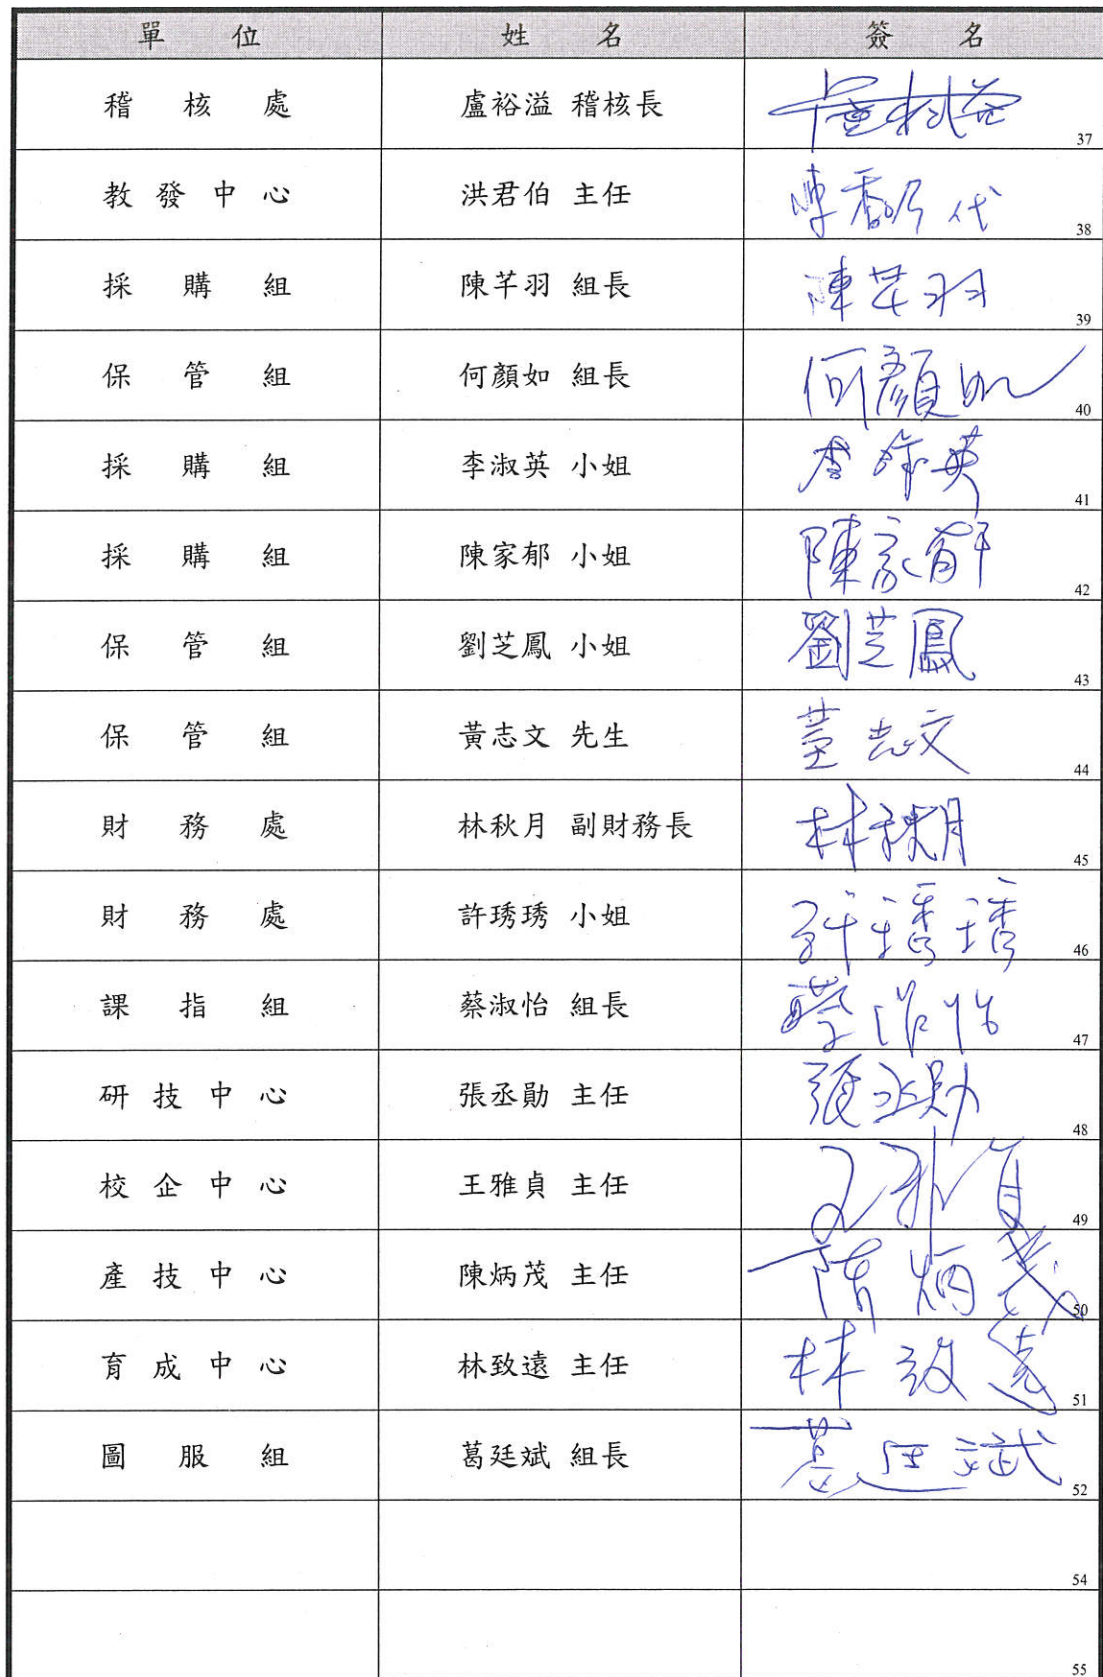 單位 姓名 簽名
稽核處 盧裕溢 稽核長 盧裕溢 37
教發中心 洪君伯 主任 陳 代 38
採購組 陳芊羽 組長 陳芊羽 39
保管組 何顏如 組長 何顏如 40
採購組 李淑英 小姐 李淑英 41
採購組 陳家郁 小姐 陳家郁 42
保管組 劉芝鳳 小姐 劉芝鳳 43
保管組 黃志文 先生 黃志文 44
財務處 林秋月 副財務長 林秋月 45
財務處 許琇琇 小姐 許琇琇 46
課指組 蔡淑怡 組長 蔡淑怡 47
研技中心 張丞勛 主任 張丞勛 48
校企中心 王雅貞 主任 王雅貞 49
產技中心 陳炳茂 主任 陳炳茂 50
育成中心 林致遠 主任 林致遠 51
圖服組 葛廷斌 組長 葛廷斌 52
54
55